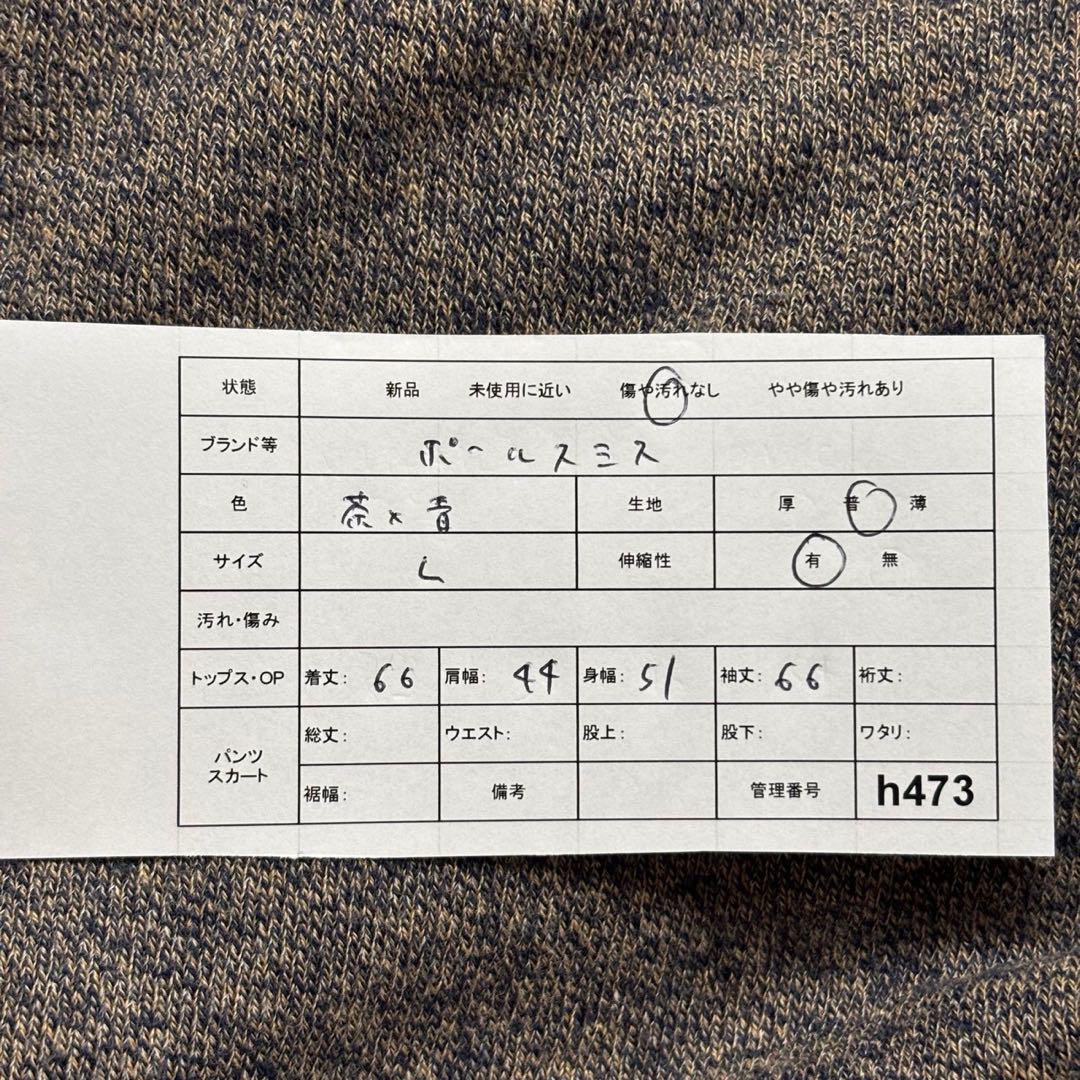 状態 新品 未使用に近い 傷や汚れなし やや傷や汚れあり
ブランド等 ポールスミス
色 茶×青 生地 厚 普 薄
サイズ L 伸縮性 有 無
汚れ・傷み
トップス・OP 着丈: 66 肩幅: 44 身幅: 51 袖丈: 66 裄丈:
パンツ スカート 総丈: ウエスト: 股上: 股下: ワタリ:
裾幅: 備考 管理番号 h473